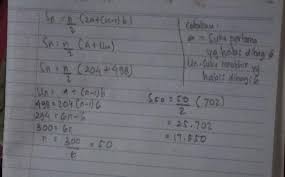 Sn = n/2 (2a+(n-1)b)
Sn = n/2 (a+Un)
Sn = n/2 (204 + 498)
Un = a + (n-1)b
498 = 204(n-1)6
294 = 6n-6
300 = 6n
n = 300/6 = 50
Catatan:
a = Suku pertama
yg habis dibagi 6
Un = Suku terakhir yg
habis dibagi 6
S50 = 50/2 (702)
= 25.702
= 17.550